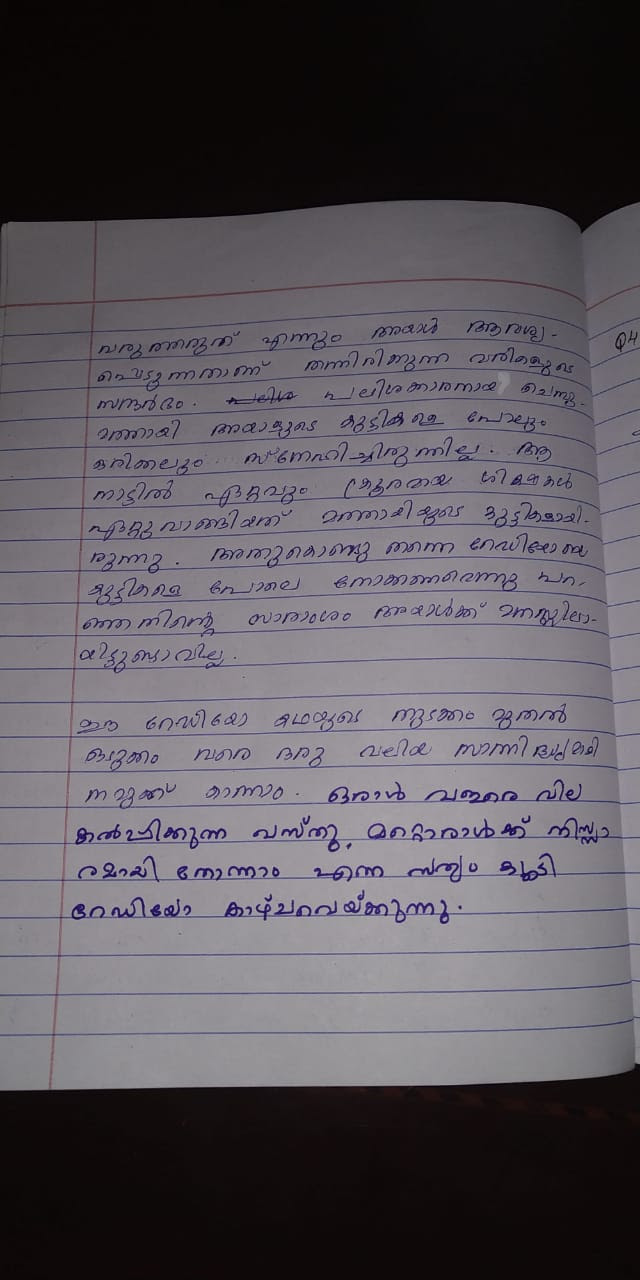 വരുത്തരുത് എന്നും അയാൾ ആവശ്യ-
പ്പെടുന്നതാണ് തന്നിരിക്കുന്ന വരികളുടെ
സന്ദർഭം. പലിശക്കാരനായ ചെമ്പു-
മത്തായി അയാളുടെ കുട്ടികളെ പോലും
ഒരിക്കലും സ്നേഹിച്ചിരുന്നില്ല. ആ
നാട്ടിൽ ഏറ്റവും ക്രൂരമായ ശിക്ഷകൾ
ഏറ്റുവാങ്ങിയത് മത്തായിയുടെ കുട്ടികളായി-
രുന്നു. അതുകൊണ്ടു തന്നെ റേഡിയോയെ
കുട്ടികളെ പോലെ നോക്കണമെന്നു പറ-
ഞ്ഞതിന്റെ സാരാംശം അയാൾക്ക് മനസ്സിലാ-
യിട്ടുണ്ടാവില്ല.
ഈ റേഡിയോ കഥയുടെ തുടക്കം മുതൽ
ഒടുക്കം വരെ ഒരു വലിയ സാന്നിദ്ധ്യമായി
നമുക്ക് കാണാം. ഒരാൾ വളരെ വില
കൽപ്പിക്കുന്ന വസ്തു, മറ്റൊരാൾക്ക് നിസ്സാ
രമായി തോന്നാം എന്ന സത്യം കൂടി
റേഡിയോ കാഴ്ചവെയ്ക്കുന്നു.
Q4